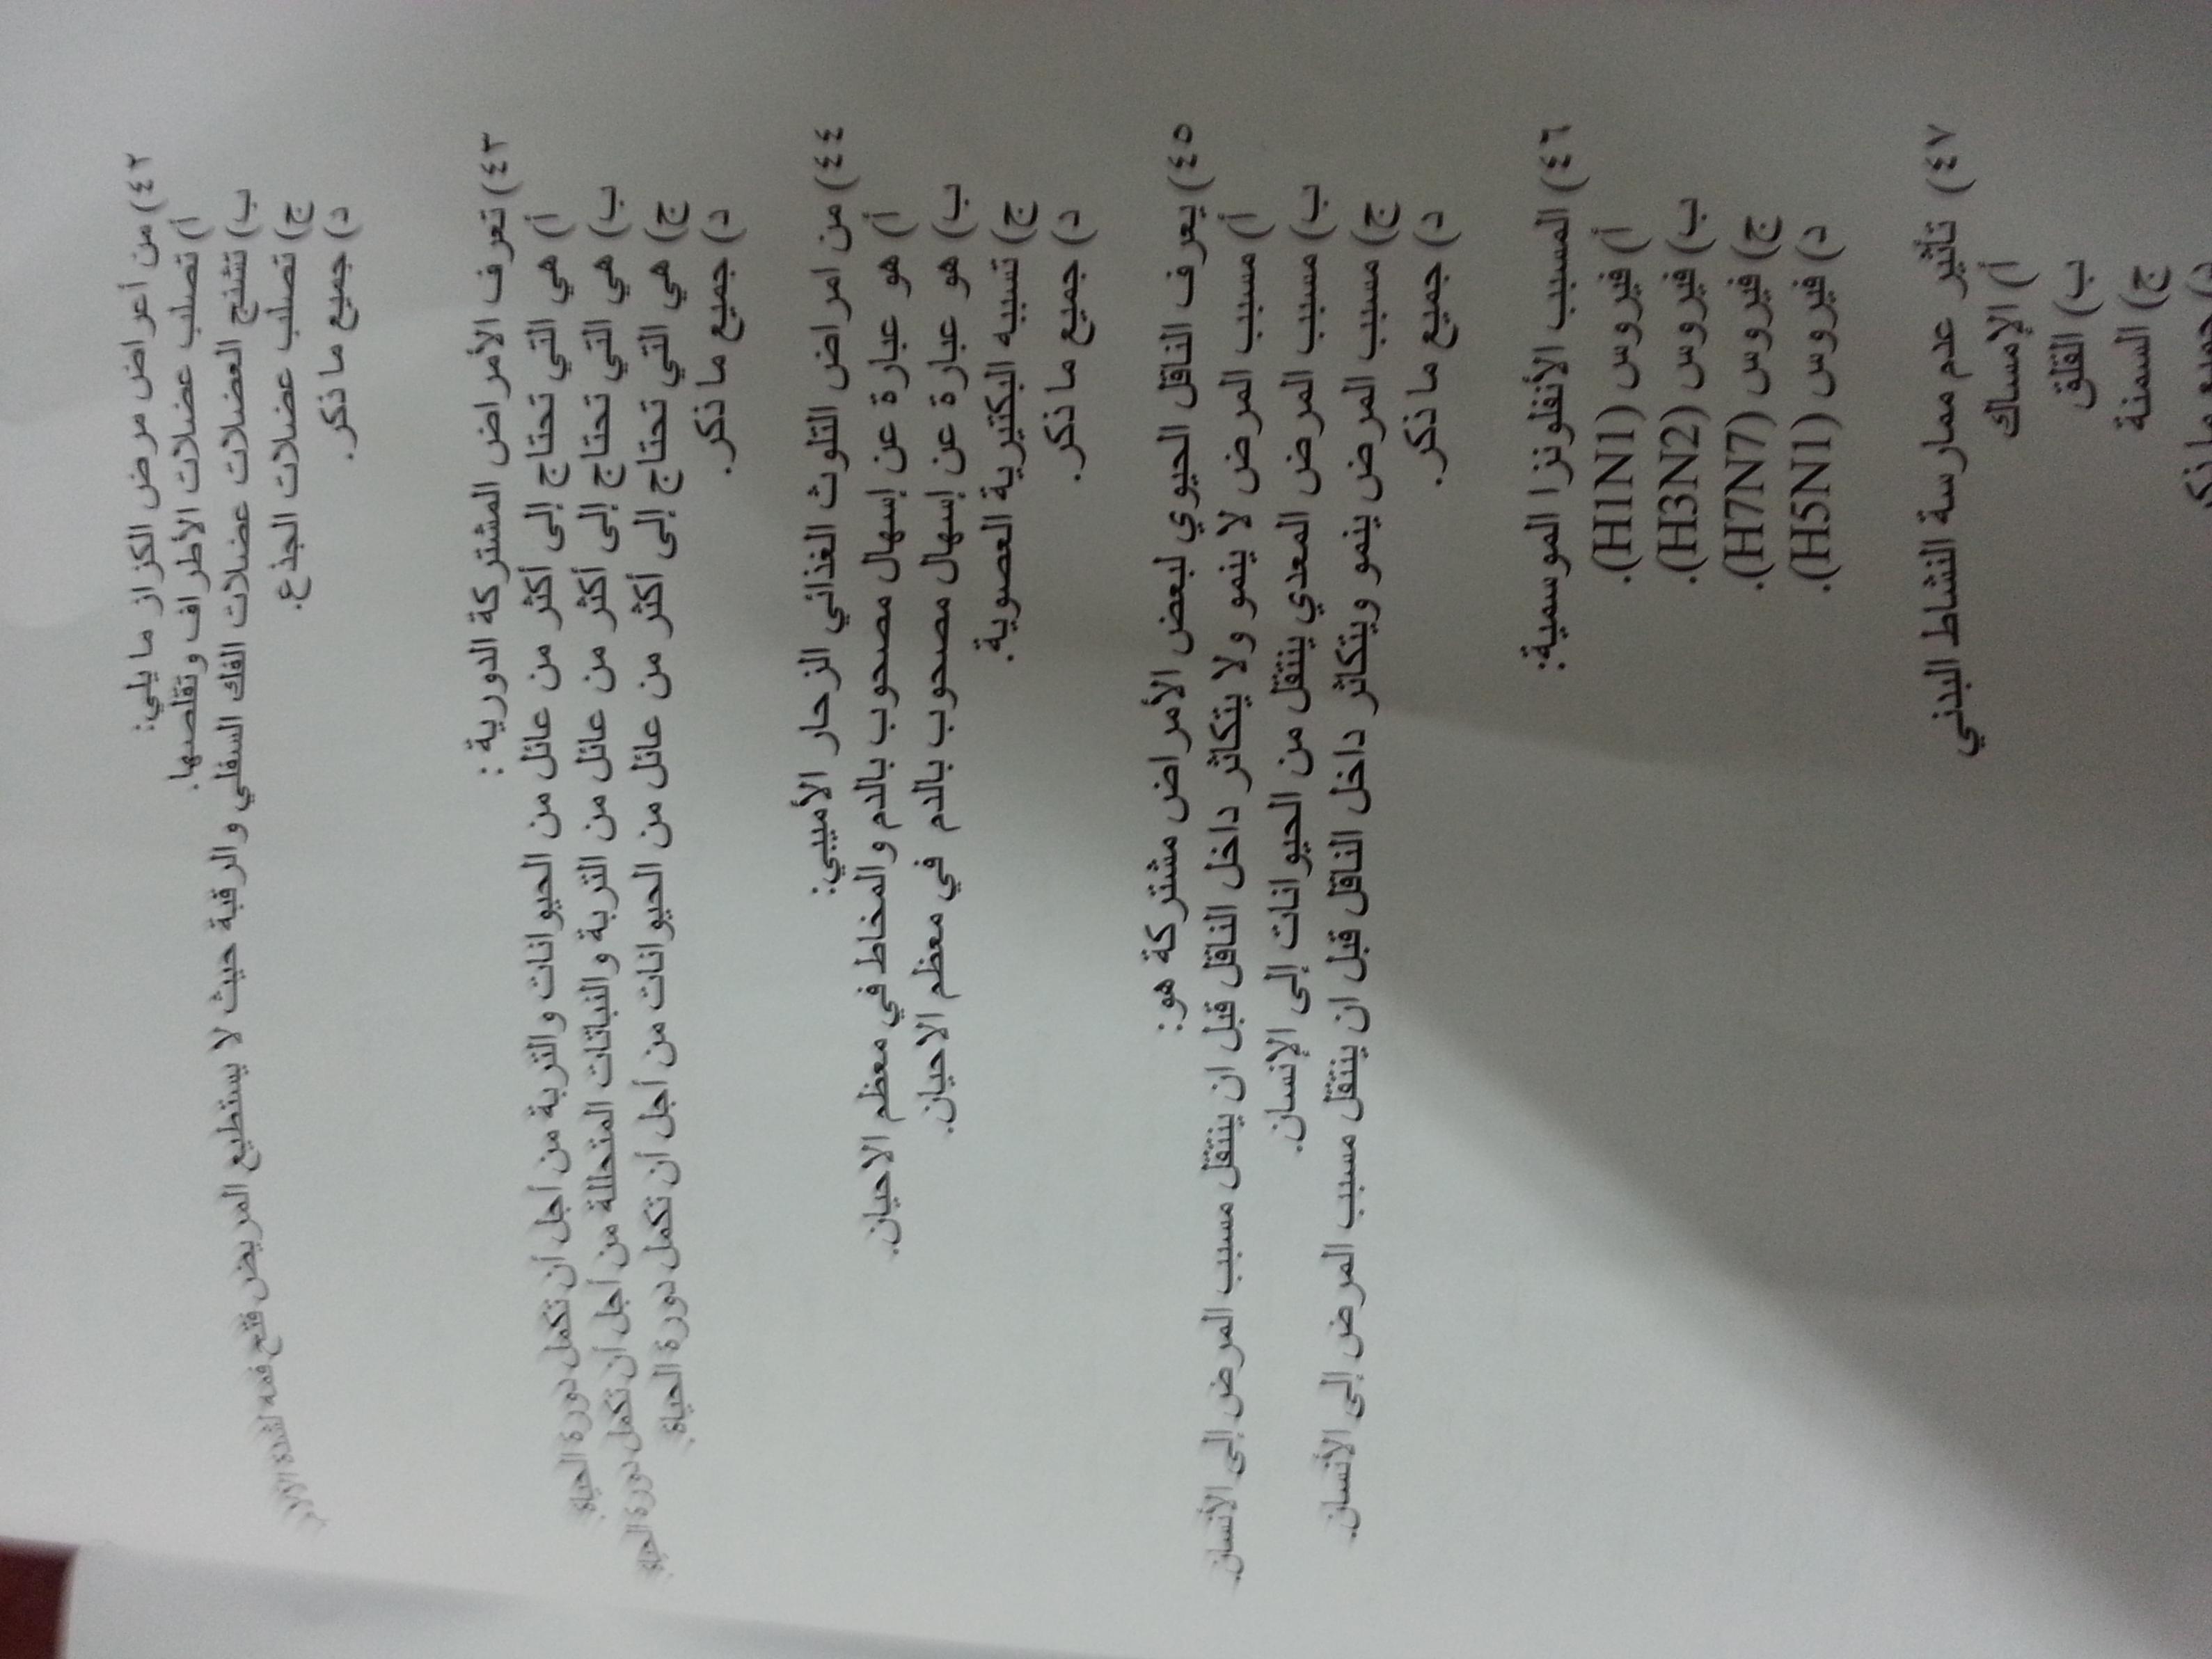 ٤٢) من أعراض مرض الكزاز ما يلي:
أ) تصلب عضلات الأطراف وتقلصها.
ب) تشنج العضلات عضلات الفك السفلي والرقبة حيث لا يستطيع المريض فتح فمه لشدة
ج) تصلب عضلات الجذع.
د) جميع ما ذكر.
٤٣) تعرف الأمراض المشتركة الدورية :
أ) هي التي تحتاج إلى أكثر من عائل من الحيوانات والتربة من أجل أن تكمل دورة الحياة
ب) هي التي تحتاج إلى أكثر من عائل من التربة والنباتات المتحللة من أجل أن تكمل دورة الحياة
ج) هي التي تحتاج إلى أكثر من عائل من الحيوانات من أجل أن تكمل دورة الحياة.
د) جميع ما ذكر.
٤٤) من امراض التلوث الغذائي الزحار الأميبي:
أ) هو عبارة عن إسهال مصحوب بالدم والمخاط في معظم الاحيان.
ب) هو عبارة عن إسهال مصحوب بالدم في معظم الاحيان.
ج) تسببه البكتيرية العصوية.
د) جميع ما ذكر.
٤٥) يعرف الناقل الحيوي لبعض الأمراض مشتركة هو:
أ) مسبب المرض لا ينمو ولا يتكاثر داخل الناقل قبل ان ينتقل مسبب المرض إلى الأنسان.
ب) مسبب المرض المعدي ينتقل من الحيوانات إلى الإنسان.
ج) مسبب المرض ينمو ويتكاثر داخل الناقل قبل ان ينتقل مسبب المرض إلى الأنسان.
د) جميع ما ذكر.
٤٦) المسبب الأنفلونزا الموسمية:
أ) فيروس (H1N1).
ب) فيروس (H3N2).
ج) فيروس (H7N7).
د) فيروس (H5N1).
٤٧) تأثير عدم ممارسة النشاط البدني
أ) الإمساك
ب) القلق
ج) السمنة
د) جميع ما ذكر